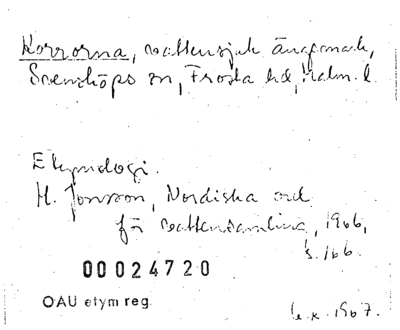 Korrorna, vattensjuk ängsmark,
Svensköps sn, Frosta hd, Malm. l.
Etymologi.
H. Jonsson, Nordiska ord
för vattensamling, 1966,
s. 166.
00024720
OAU etym reg.
1967.